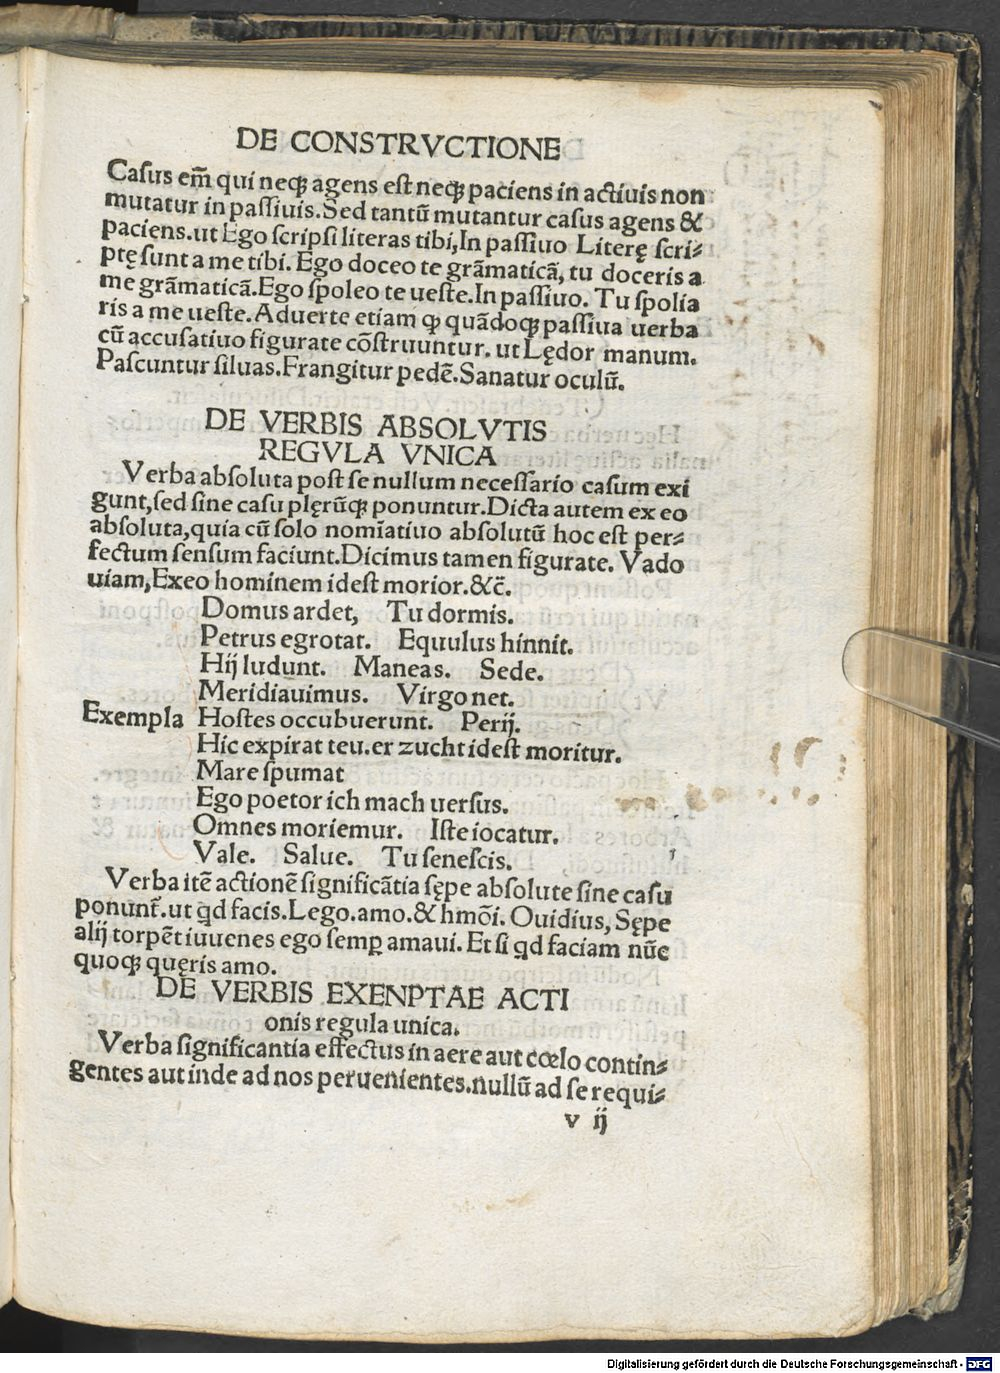 DE CONSTRVCTIONE
Casus em̃ qui neqꝫ agens est neqꝫ paciens in actiuis non
mutatur in passiuis. Sed tantũ mutantur casus agens &
paciens. ut Ego scripsi literas tibi, In passiuo Literę scri⸗
ptę sunt a me tibi. Ego doceo te grãmaticã, tu doceris a
me grãmaticã. Ego spoleo te ueste. In passiuo. Tu spolia
ris a me ueste. Aduerte etiam ꝙ quãdoqꝫ passiua uerba
cũ accusatiuo figurate cõstruuntur. ut Lędor manum.
Pascuntur siluas. Frangitur pedẽ. Sanatur oculũ.
DE VERBIS ABSOLVTIS
REGVLA VNICA
Verba absoluta post se nullum necessario casum exi
gunt, sed sine casu plęrũqꝫ ponuntur. Dicta autem ex eo
absoluta, quia cũ solo nomĩatiuo absolutũ hoc est per⸗
fectum sensum faciunt. Dicimus tamen figurate. Vado
uiam, Exeo hominem idest morior. &c̃.
Domus ardet, Tu dormis.
Petrus egrotat. Equulus hinnit.
Hij ludunt. Maneas. Sede.
Meridiauimus. Virgo net.
Exempla Hostes occubuerunt. Perij.
Hic expirat teu.er zucht idest moritur.
Mare spumat
Ego poetor ich mach uersus.
Omnes moriemur. Iste iocatur.
Vale. Salue. Tu senescis.
Verba itẽ actionẽ significãtia sępe absolute sine casu
ponunt᷑. ut qd facis. Lego. amo. & hmõi. Ouidius, Sępe
alij torpẽt iuuenes ego semꝑ amaui. Et si qd faciam nũc
quoqꝫ quęris amo.
DE VERBIS EXENPTAE ACTI
onis regula unica.
Verba significantia effectus in aere aut cœlo contin⸗
gentes aut inde ad nos peruenientes. nullũ ad se requi⸗
v ij
Digitalisierung gefördert durch die Deutsche Forschungsgemeinschaft - DFG